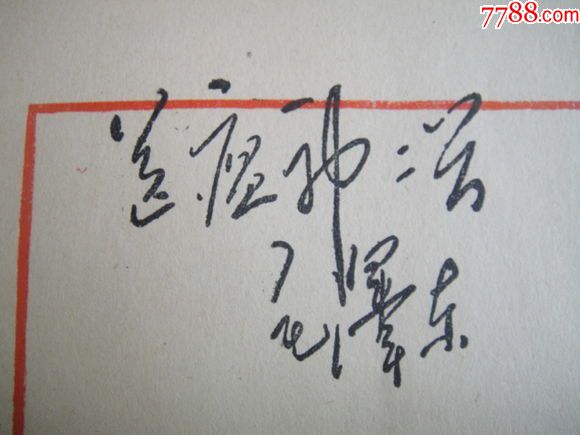 7788.com
送瘟神二首
毛澤东